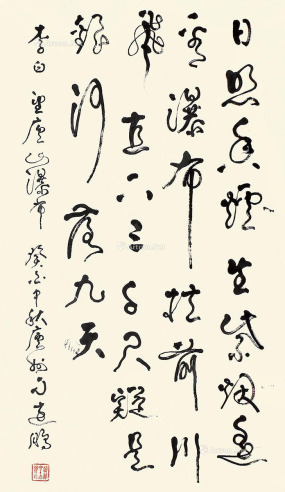 日照香爐生紫烟遥
看瀑布挂前川
飛直下三千尺疑是
銀河落九天
李白望廬山瀑布 癸未中秋廬州